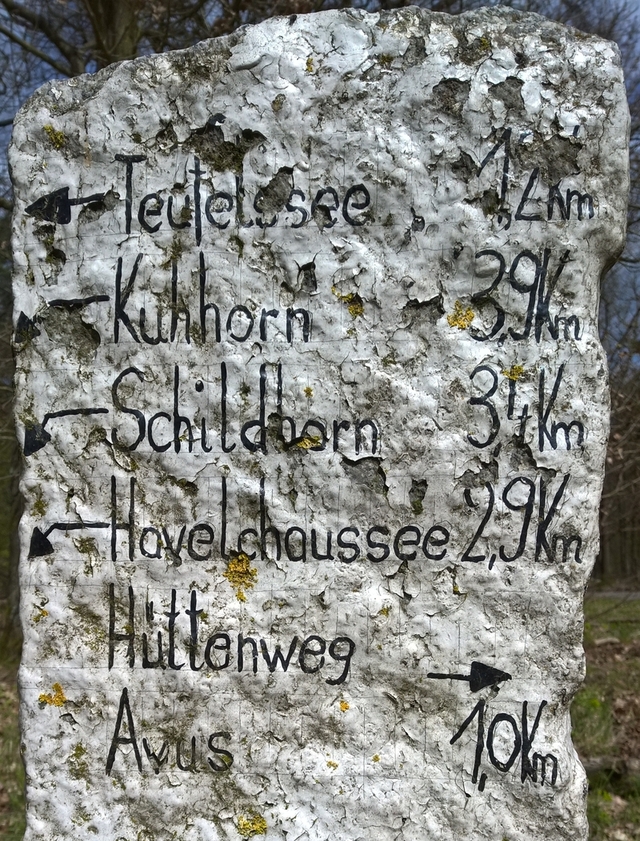 Teufelssee 1,2 Km
Kuhhorn 3,9 Km
Schildhorn 3,4 Km
Havelchaussee 2,9 Km
Hüttenweg
Avus 1,0 Km